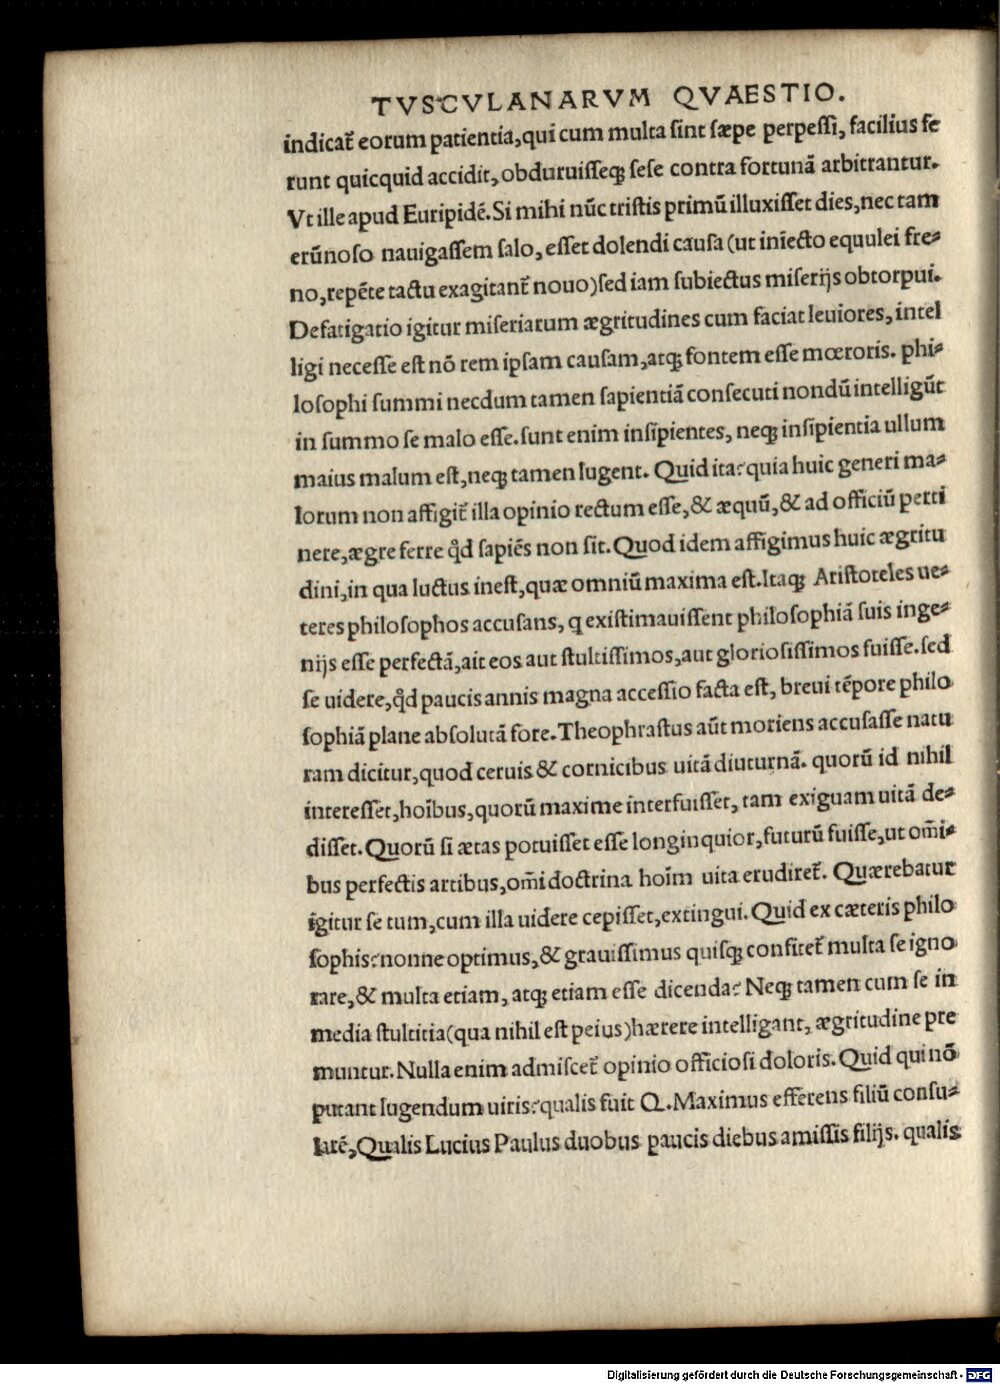 TVSCVLANARVM QVAESTIO.
indicat᷑ eorum patientia,qui cum multa ſint ſæpe perpeſſi, facilius fe
runt quicquid accidit,obduruiſſeqꝫ ſeſe contra fortunā arbitrantur.
Vt ille apud Euripidē.Si mihi nūc triſtis primū illuxiſſet dies,nec tam
erūnoſo nauigaſſem ſalo,eſſet dolendi cauſa(ut iniecto equulei fre⸗
no,repēte tactu exagitant᷑ nouo)ſed iam ſubiectus miſerijs obtorpui.
Defatigatio igitur miſeriarum ægritudines cum faciat leuiores, intel
ligi neceſſe eſt nō rem ipſam cauſam,atqꝫ fontem eſſe mœroris. phi⸗
loſophi ſummi necdum tamen ſapientiā conſecuti nondū intelligūt
in ſummo ſe malo eſſe.ſunt enim inſipientes, neqꝫ inſipientia ullum
maius malum eſt,neqꝫ tamen lugent. Quid ita?quia huic generi ma⸗
lorum non affigit᷑ illa opinio rectum eſſe,& æquū,& ad officiū perti
nere,ægre ferre qd̓ ſapiēs non ſit.Quod idem affigimus huic ægritu
dini,in qua luctus ineſt,quæ omniū maxima eſt.Itaqꝫ Ariſtoteles ue⸗
teres philoſophos accuſans, q exiſtimauiſſent philoſophiā ſuis inge⸗
nijs eſſe perfectā,ait eos aut ſtultiſſimos,aut glorioſiſſimos fuiſſe.ſed
ſe uidere,qd̓ paucis annis magna acceſſio facta eſt, breui tēpore philo
ſophiā plane abſolutā fore.Theophraſtus aūt moriens accuſaſſe natu
ram dicitur,quod ceruis & cornicibus uitā diuturnā. quorū id nihil
intereſſet,hoībus,quorū maxime interfuiſſet, tam exiguam uitā de⸗
diſſet.Quorū ſi ætas potuiſſet eſſe longinquior,futurū fuiſſe,ut om̄i⸗
bus perfectis artibus,om̄i doctrina hoīm uita erudiret᷑. Quærebatur
igitur ſe tum,cum illa uidere cepiſſet,extingui.Quid ex cæteris philo
ſophis?nonne optimus,& grauiſſimus quiſqꝫ confitet᷑ multa ſe igno
rare,& multa etiam, atqꝫ etiam eſſe dicenda? Neqꝫ tamen cum ſe in
media ſtultitia(qua nihil eſt peius)hærere intelligant, ægritudine pre
muntur.Nulla enim admiſcet᷑ opinio officioſi doloris.Quid qui nō
putant lugendum uiris?qualis fuit Q.Maximus efferens filiū conſu⸗
larē,Qualis Lucius Paulus duobus paucis diebus amiſſis filijs. qualis
Digitalisierung gefördert durch die Deutsche Forschungsgemeinschaft - DFG